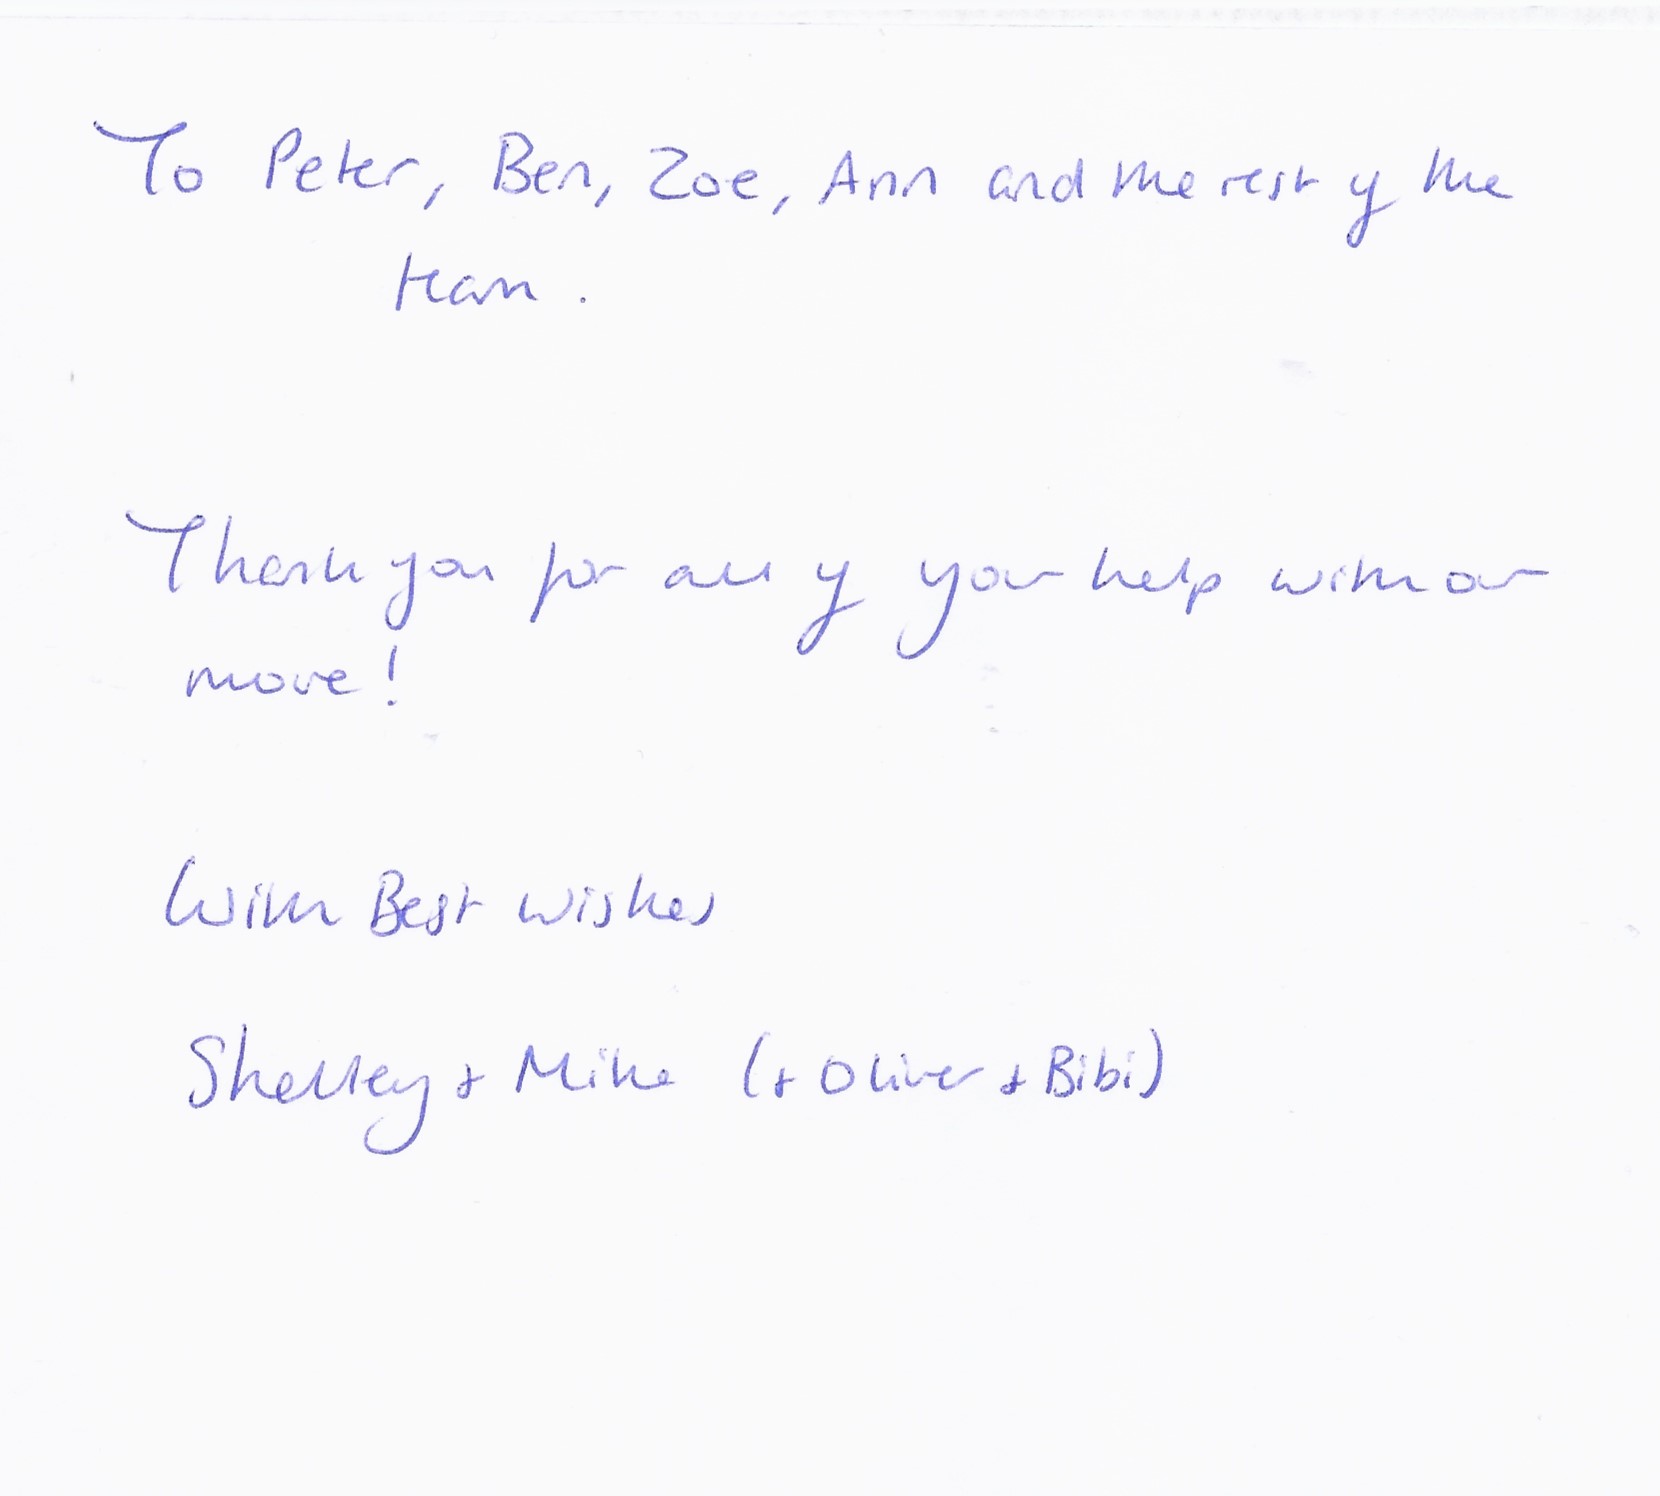 To Peter, Ben, Zoe, Ann and the rest of the
team.
Thank you for all of your help with our
move!
With Best wishes
Shelley + Mike (+ Oliver + Bibi)